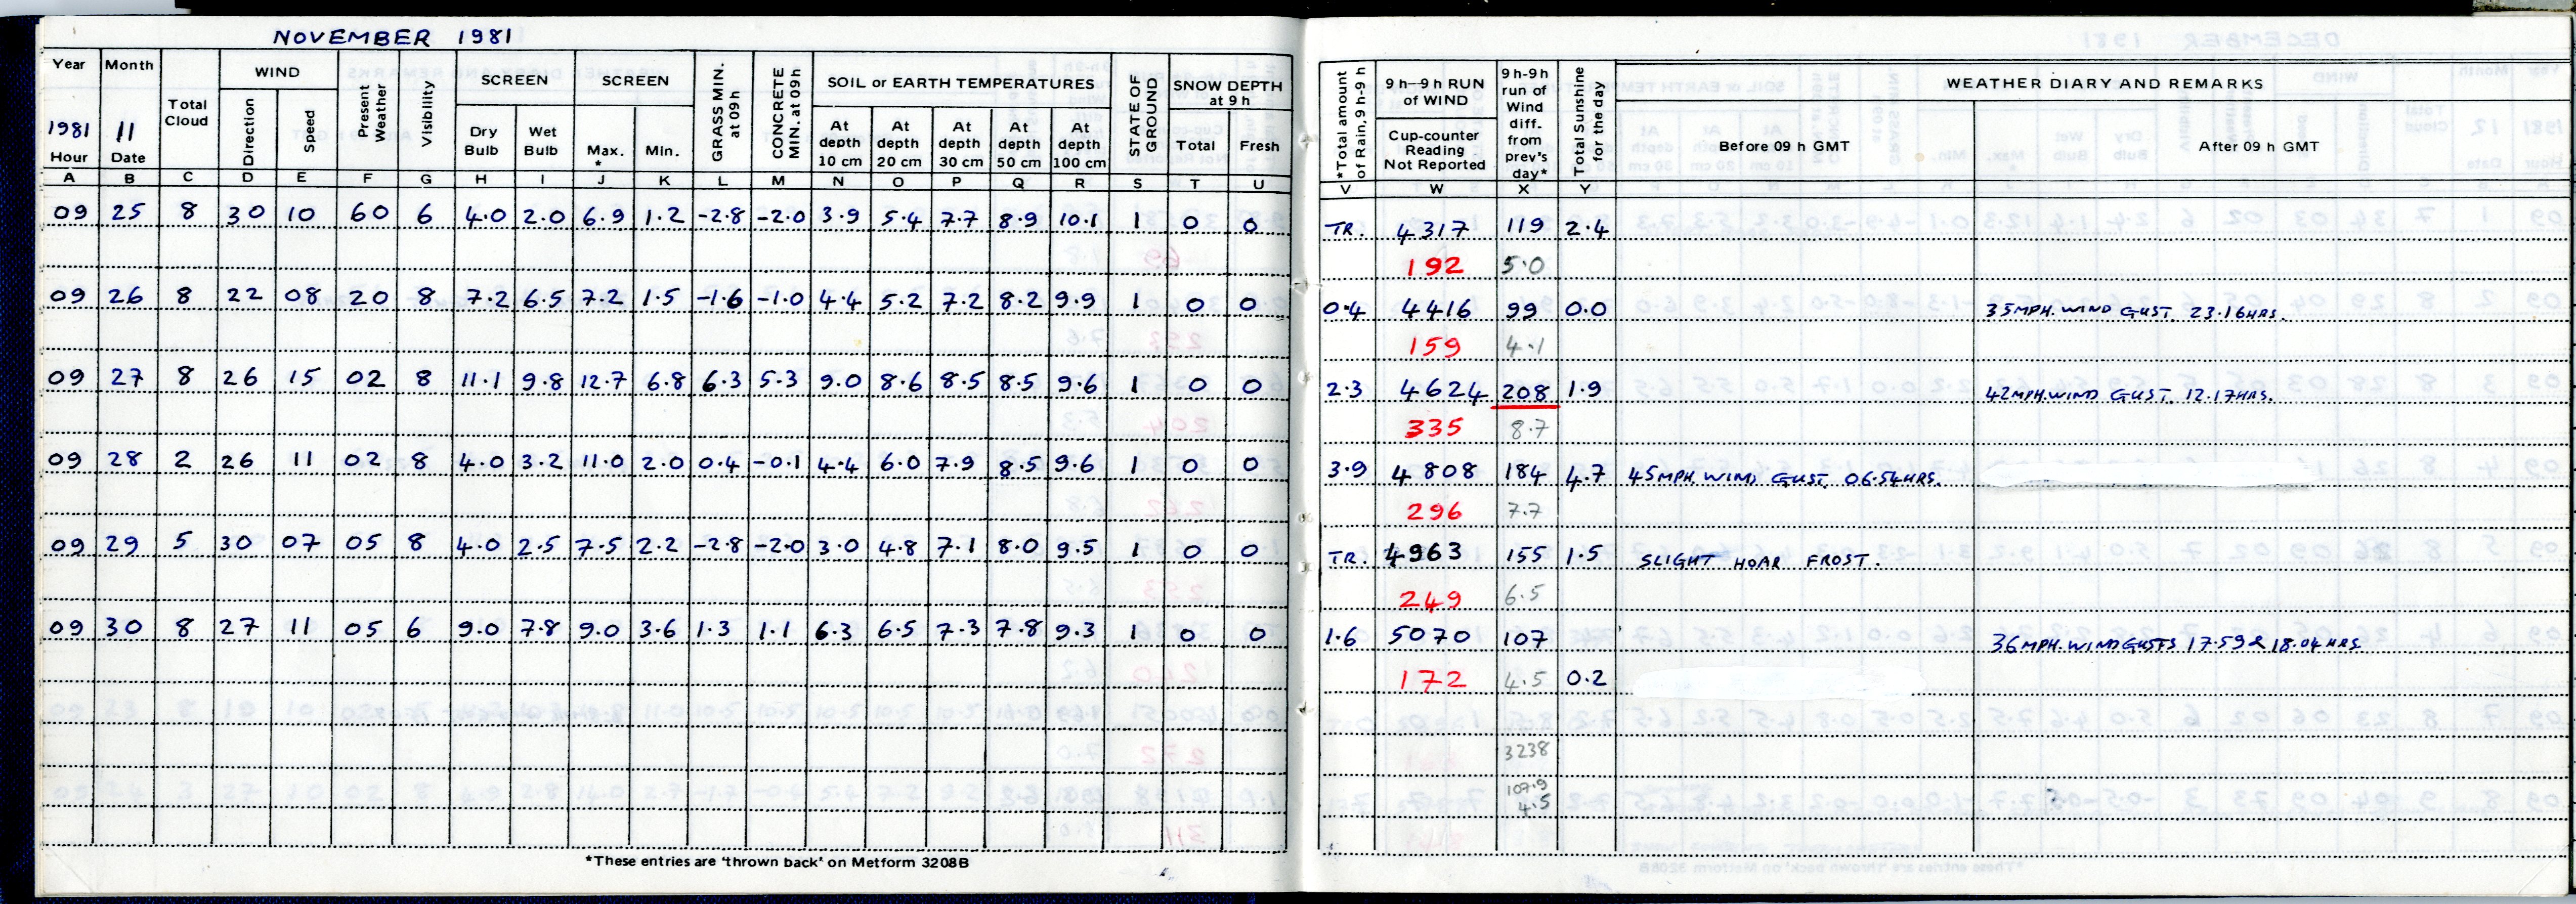 NOVEMBER 1981
Year Month Total Cloud WIND Present Weather Visibility SCREEN SCREEN GRASS MIN. at 09h CONCRETE MIN. at 09h SOIL or EARTH TEMPERATURES STATE OF GROUND SNOW DEPTH at 9 h
1981 11 Direction Speed Dry Bulb Wet Bulb Max. * Min. At depth 10 cm At depth 20 cm At depth 30 cm At depth 50 cm At depth 100 cm Total Fresh
Hour Date
A B C D E F G H I J K L M N O P Q R S T U
09 25 8 30 10 60 6 4.0 2.0 6.9 1.2 -2.8 -2.0 3.9 5.4 7.7 8.9 10.1 1 0 0
09 26 8 22 08 20 8 7.2 6.5 7.2 1.5 -1.6 -1.0 4.4 5.2 7.2 8.2 9.9 1 0 0
09 27 8 26 15 02 8 11.1 9.8 12.7 6.8 6.3 5.3 9.0 8.6 8.5 8.5 9.6 1 0 0
09 28 2 26 11 02 8 4.0 3.2 11.0 2.0 0.4 -0.1 4.4 6.0 7.9 8.5 9.6 1 0 0
09 29 5 30 07 05 8 4.0 2.5 7.5 2.2 -2.8 -2.0 3.0 4.8 7.1 8.0 9.5 1 0 0
09 30 8 27 11 05 6 9.0 7.8 9.0 3.6 1.3 1.1 6.3 6.5 7.3 7.8 9.3 1 0 0
*These entries are 'thrown back' on Metform 3208B
*Total amount of Rain, 9 h-9 h 9 h-9 h RUN of WIND 9 h-9h run of Wind diff. from prev's day* Total Sunshine for the day WEATHER DIARY AND REMARKS
Cup-counter Reading Not Reported Before 09 h GMT After 09 h GMT
V W X Y
TR. 4317 119 2.4
192 5.0
0.4 4416 99 0.0 35MPH. WIND GUST. 23.16HRS.
159 4.1
2.3 4624 208 1.9 42MPH.WIND GUST. 12.17HRS.
335 8.7
3.9 4808 184 4.7 45MPH. WIND GUST. 06.54HRS.
296 7.7
TR. 4963 155 1.5 SLIGHT HOAR FROST.
249 6.5
1.6 5070 107 36MPH.WIND GUSTS 17.59 & 18.04 HRS
172 4.5 0.2
3238
107.9
4.5